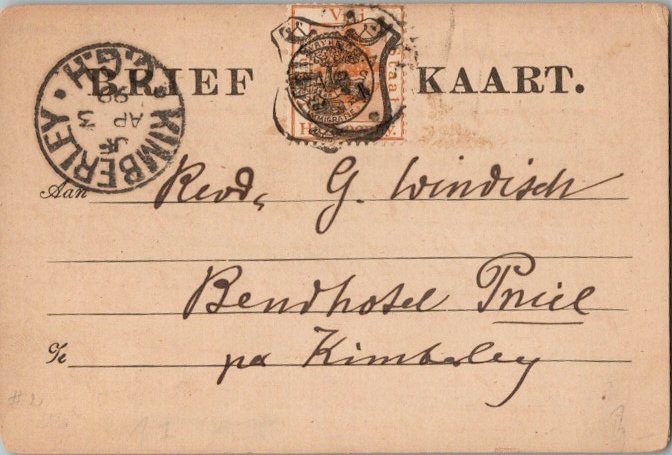 BRIEF KAART.
Vrij
Staat
KIMBERLEY
AP 3
98
Aan Revd. G. Windisch
Bendhotel Pniel
Te pa Kimberley